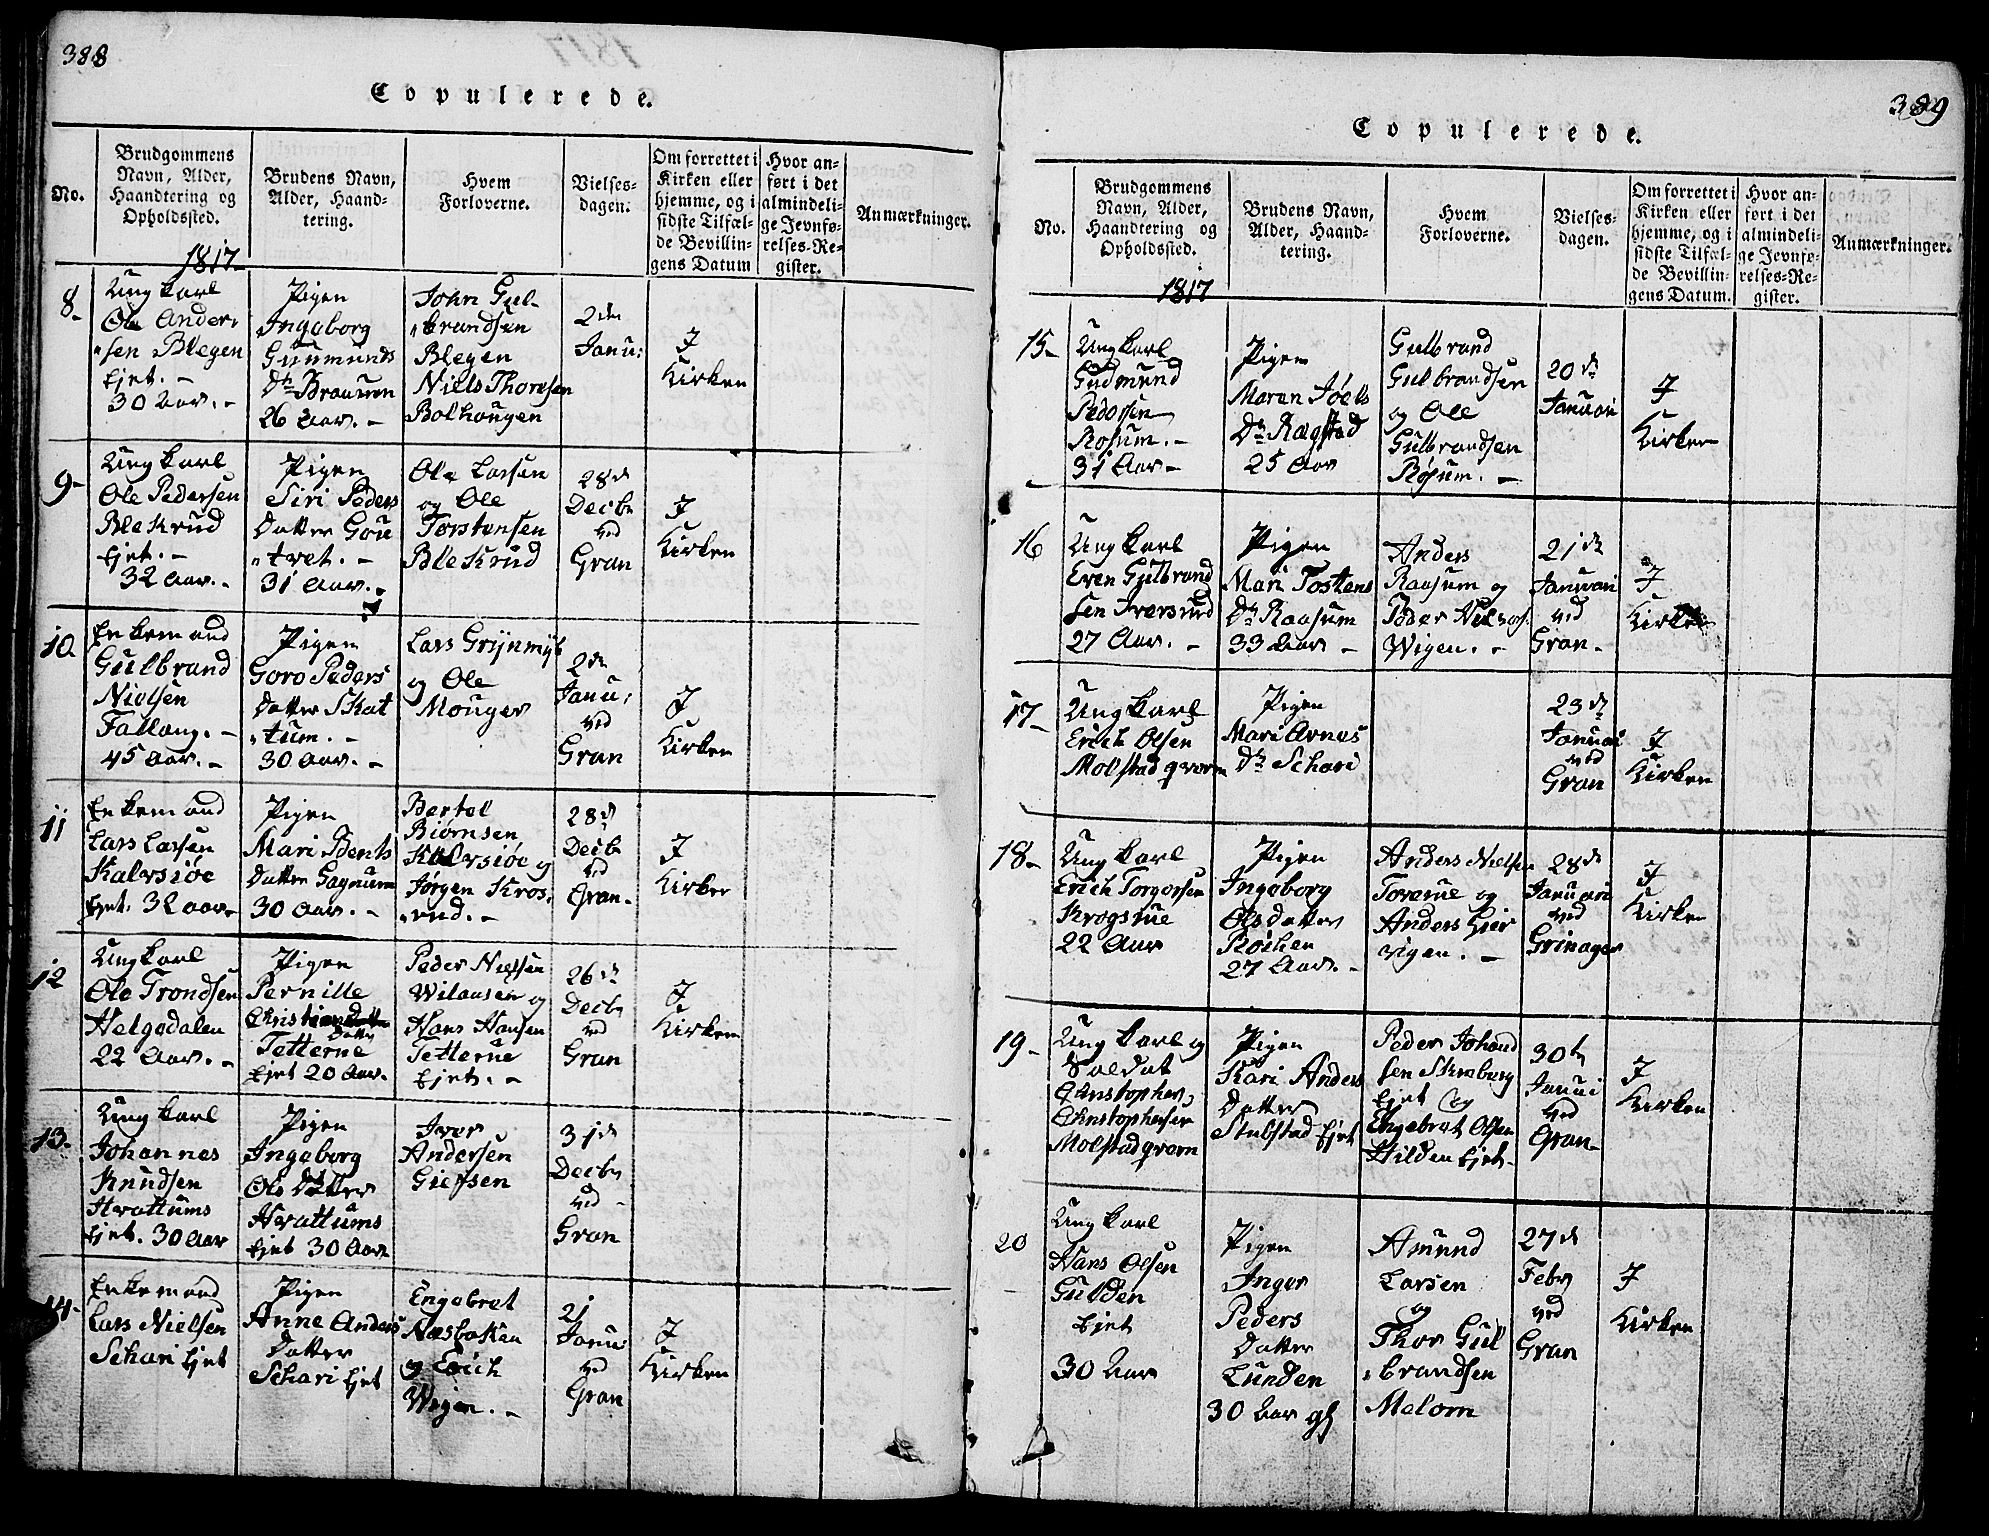 388
Copulerede.
No.
Brudgommens
Navn, Alder,
Haandtering og
Opholdssted.
Brudens Navn,
Alder, Haand-
tering.
Hvem
Forloverne.
Vielses-
dagen.
Om forrettet i
Kirken eller
hjemme, og i
sidste Tilfæl-
de Bevillin-
gens Datum
Hvor an-
ført i det
almindeli-
ge Jevnfø-
relses-Re-
gister.
Anmærkninger.
1817
8-
Ung karl
Ole Ander,
"sen Blegen
Ejet. -
30 Aar. -
Pigen
Ingeborg
Guumunds
Dr Braaum
26 Aar. -
John Gul-
"brandsen
Blegen
Niels Thoresen
Bolhougen
2den
Janu:
I
Kirken
9-
Ung karl
Ole Pedersen
Blekrud
Ejet. -
32 Aar. -
Pigen
Siri Peders
Datter Gou
"tvet. -
31 Aar. -
Ole Larsen
og Ole
Torstensen
Blekrud
28de
Decbr
ved
Gran
I
Kirken
10.
Enkemand
Gulbrand
Nielsen
Fallang. -
45 Aar. -
Pigen
Goro Peders
Datter Skat
"tum. -
30 Aar. -
Lars Grijnmyr
og Ole
Mouger
2den
Janu:
ved
Gran
I
Kirken
11
Enkemand
Lars Larsen
Kalvsiøe
Ejet. 32 aar.
Pigen
Mari Bents
Datter Gagnum
30 Aar. -
Bertel
Biørnsen
Kalvsiøe og
Jørgen Kros,
"rud. -
28de
Decbr
ved
Gran.
I
Kirken
12
Ung karl
Ole Trondsen
Helgedalen
22 Aar. -
Pigen
Pernille
Christians
Datter
Tetterue
Ejet 20 Aar.
Peder Nielsen
Wilansen og
Hans Hansen
Tetterue
Ejet. -
26de
Decbr
ved
Gran
I
Kirken
13.
Ung karl
Johannes
Knudsen
Hvattums
Ejet. 30 Aar
Pigen
Ingeborg
Ols Datter
Hvattums
Ejet 30 Aar
Iver
Andersen
Giefsen
31de
Decbr
ved
Gran
I
Kirken
14.
Enkemand
Lars Nielsen
Schari Ejet
Pigen
Anne Anders
Datter
Schari Ejet
Engebret
Næsbakken
og Erich
Wigen. -
21
Janu:
ved
Gran
I
Kirken
389
Copulerede.
No.
Brudgommens
Navn, Alder,
Haandtering og
Opholdssted.
Brudens Navn,
Alder, Haand-
tering.
Hvem
Forloverne.
Vielses-
dagen.
Om forrettet i
Kirken eller
hjemme, og i
sidste Tilfæl-
de Bevillin-
gens Datum.
Hvor an-
ført i det
almindeli-
ge Jevnfø-
relses-Re-
gister.
Anmærkninger.
1817
15-
Ung karl
Gudmund
Pedersen
Røsum. -
31 Aar -
Pigen
Maren Joels
Dr Rægstad
25 Aar
Gulbrand
Gulbrandsen
og Ole
Gulbrandsen
Røsum. -
20de
Januari
I
Kirken
16
Ung karl
Even Gulbrand
sen Iversrud
27 Aar. -
Pigen
Mari Tostens
Dr Raasum
33 Aar -
Anders
Raasum og
Peder Niels
Wigen. -
21de
Januari
ved
Gran.
I
Kirken
17-
Ung karl
Erich Olsen
Molstadqvern
Pigen
Mari Arnes
Dr Schari
23de
Januari
ved
Gran
I
Kirken
18-
Ung karl
Erich Torgersen
Krogsrue
22 Aar
Pigen
Ingeborg
Olsdatter
Roihen
27 Aar. -
Anders Nielsen
Toverue og
Anders Gier
vigen. -
28de
Januari
ved
Grinager
I
Kirken
19-
Ung karl og
Soldat
Christopher
Christophersen
Molstadqvern
Pigen
Kari Anders
Datter
Stubstad Ejet
Peder Johand
sen Skreberg
Ejet og
Engebret Olsen
Hilden Ejet.
30te
Januari
ved
Gran.
I
Kirken
20
Ung karl
Hans Olsen
Gulden
Ejet
30 Aar
Pigen
Inger
Peders
Datter
Lunden
30 Aar gl
Amund
Larsen
og
Thor Gul
"brandsen
Melom
27de
Febr
ved
Gran
I
Kirken